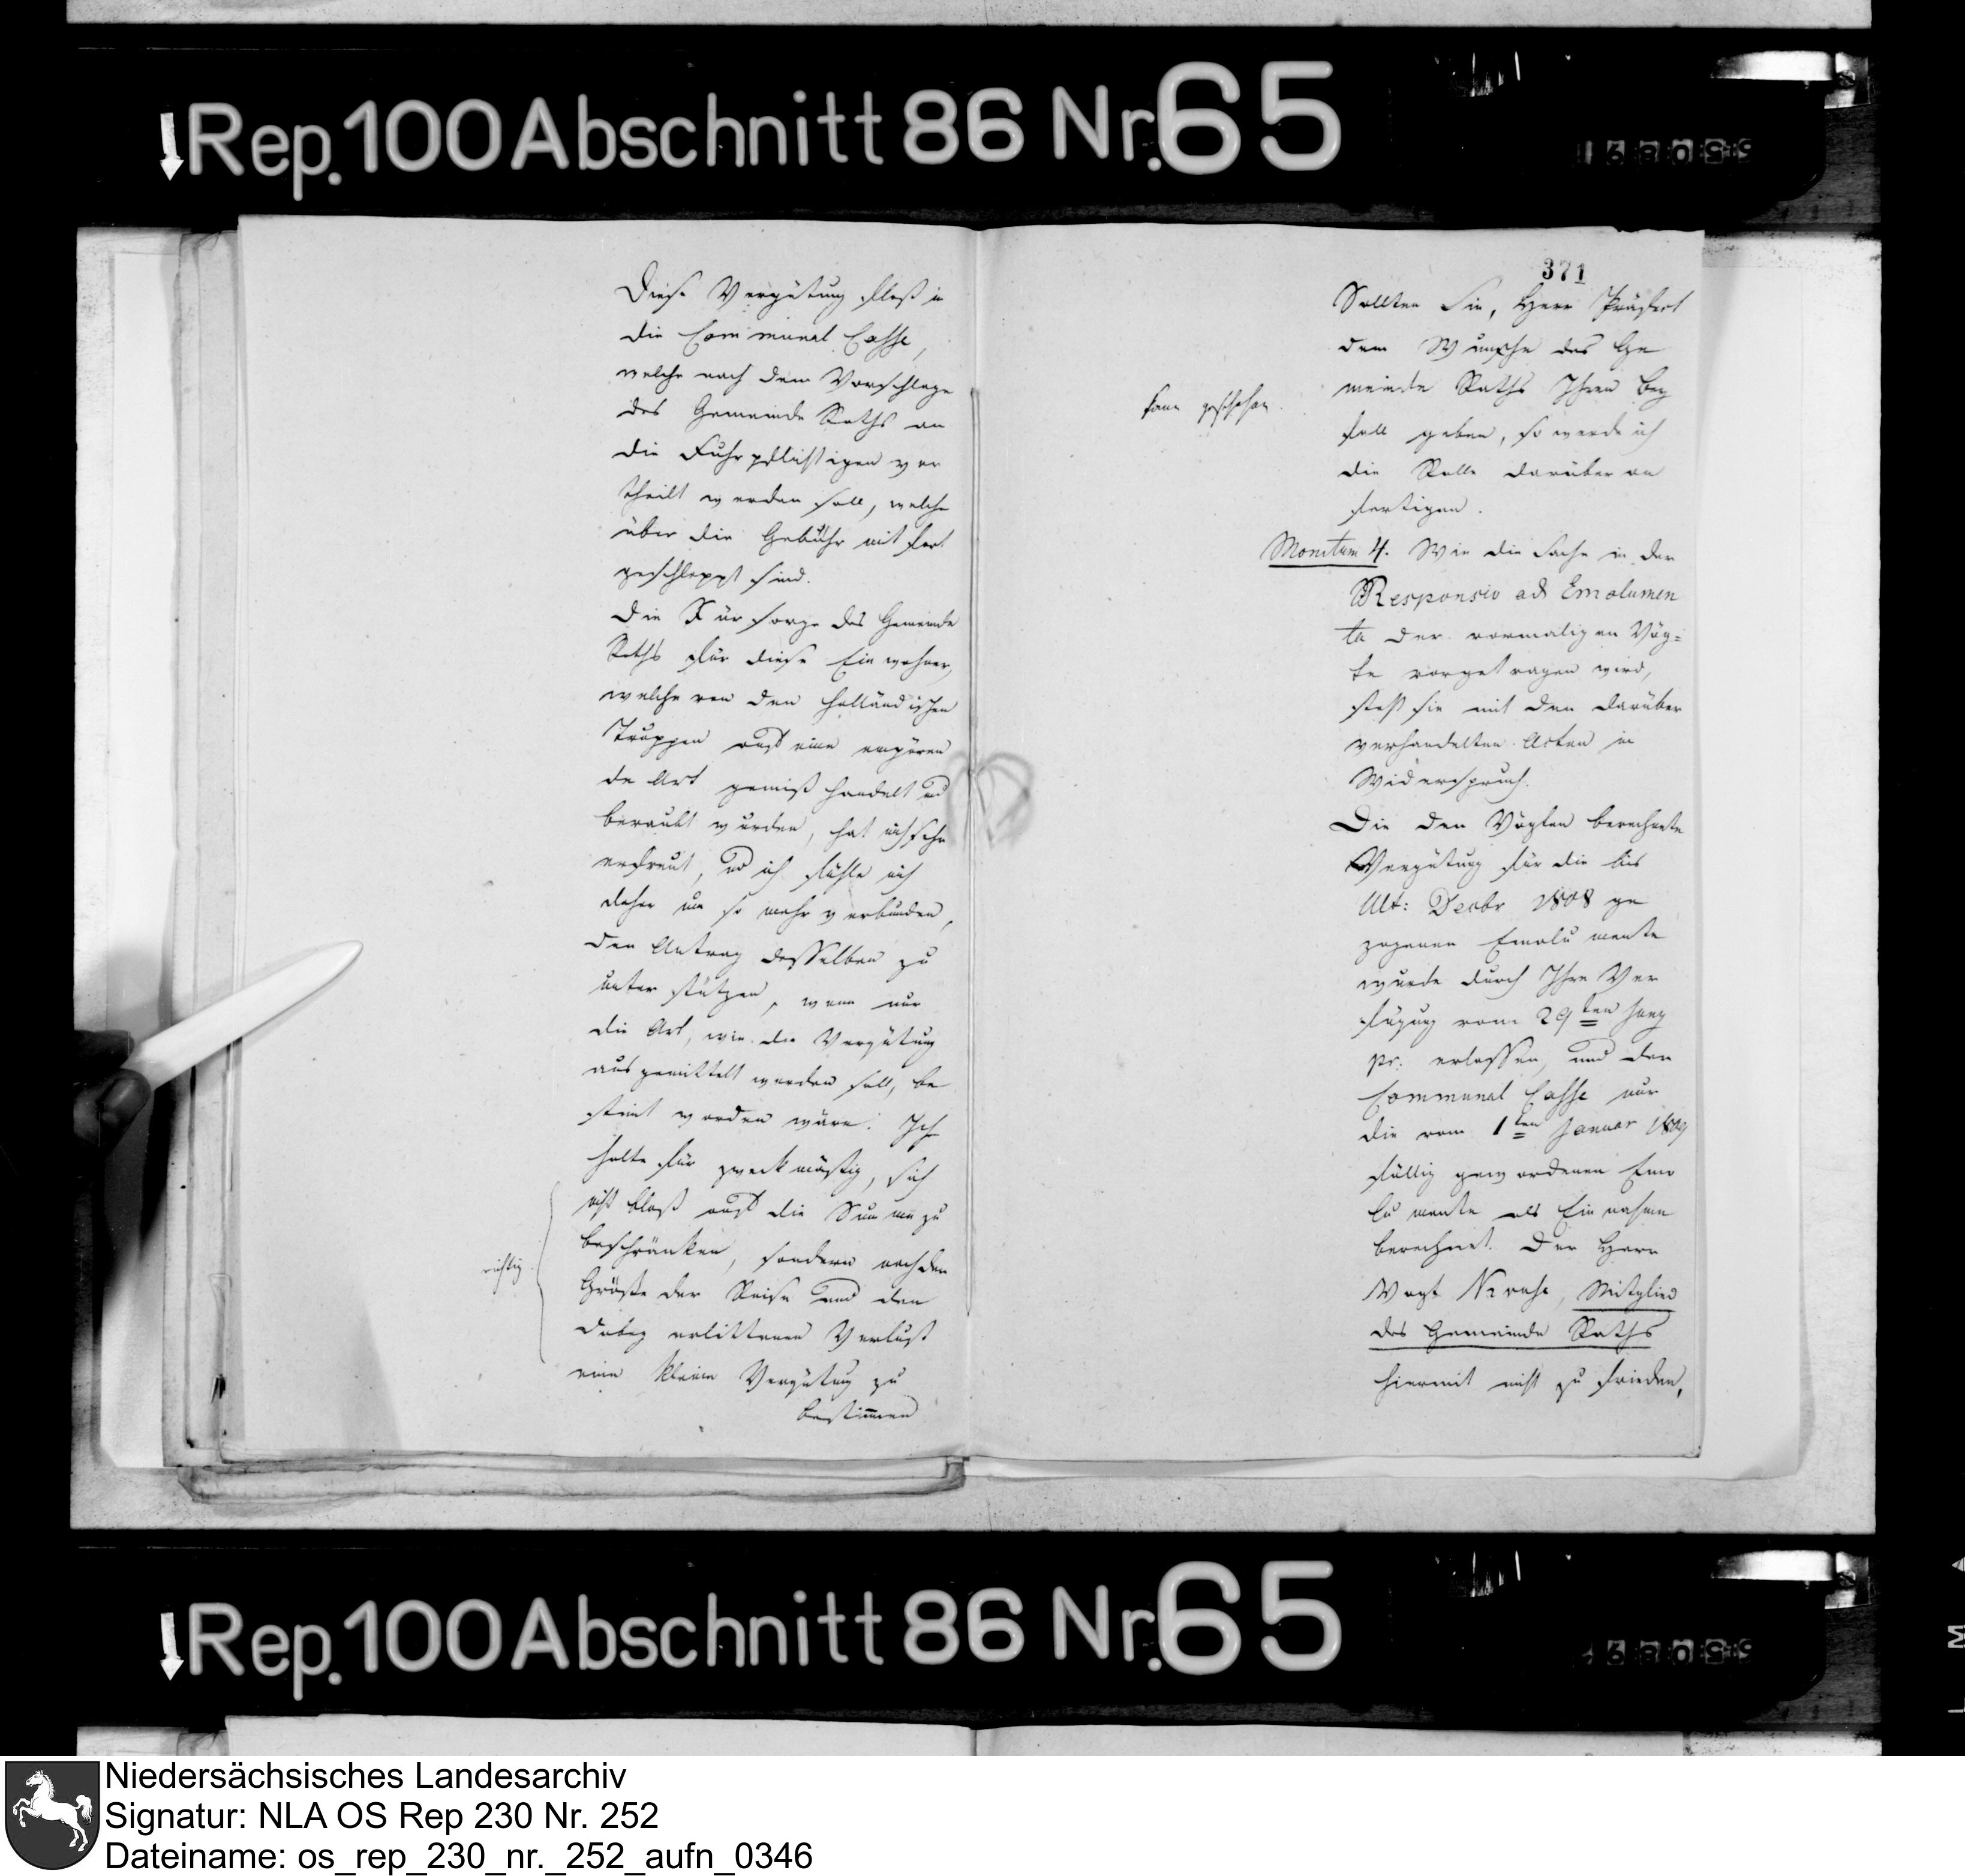 Rep. 100 Abschnitt 86 Nr. 65
Diese Vergütung fließt in
die Communal Casse,
welche nach dem Vorschlage
des Gemeinde Raths an
die Fuhrpflichtigen ver
theilt werden soll, welche
über die Gebühr mit fort
geschleppt sind.
Die Fürsorge des Gemeinde
Raths für diese Einwohner,
welche von den holländischen
Truppen auf eine empören
de Art gemißhandelt und
beraubt wurden, hat mich sehr
erfreut, und ich fühle mich
daher um so mehr verbunden,
den Antrag desselben zu
unterstützen, wenn nur
die Art, wie die Vergütung
ausgemittelt werden soll, be
stimt worden wäre. Ich
halte für zweckmäßig, sich
nicht bloß auf die Summe zu
beschränken, sondern nach der
Größe der Reise und den
dabey erlittenen Verlust
eine kleine Vergütung zu
bestimmen
richtig
371
Sollten Sie, Herr Präfect
dem Wunsche des Ge
meinde Raths Ihren Bey
fall geben, so werde ich
die Rolle darüber an
fertigen.
kann geschehen.
Monitum 4. Wie die Sache in der
Responsio ad Emolumen
ta der vormaligen Vög=
te vorgetragen wird,
steht sie mit den darüber
verhandelten Acten in
Widerspruch.
Die den Vögten berechnete
Vergütung für die bis
Ult: Decbr 1808 ge
zogenen Emolumente
wurde durch Ihre Ver
fügung vom 29ten
pr: erlassen, und der
Communal Casse nur
die vom 1ten Januar 1809
fällig gewordenen Emo
lumente als Einnahme
berechnet. Der Herr
Vogt Mitglied
des Gemeinde Raths
hiermit nicht zufrieden,
Rep. 100 Abschnitt 86 Nr. 65
Niedersächsisches Landesarchiv
Signatur: NLA OS Rep 230 Nr. 252
Dateiname: os_rep_230_nr._252_aufn_0346